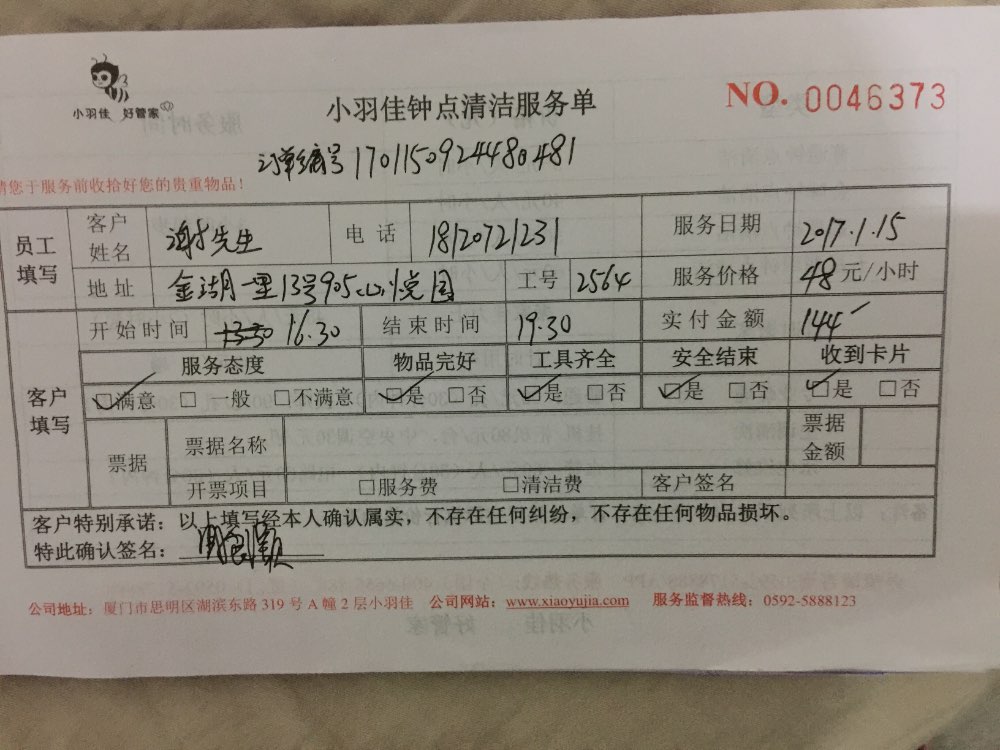 小羽佳 好管家
小羽佳钟点清洁服务单
NO. 0046373
订单编号 1701150924480481
请您于服务前收拾好您的贵重物品！
员工填写 客户姓名 谢先生 电话 18120721231 服务日期 2017.1.15
地址 金湖一里13号905 山悦园 工号 2564 服务价格 48元/小时
客户填写 开始时间 13:30 16.30 结束时间 19.30 实付金额 144
服务态度 物品完好 工具齐全 安全结束 收到卡片
☑满意 □一般 □不满意 ☑是 □否 ☑是 □否 ☑是 □否 ☑是 □否
票据 票据名称 票据金额
开票项目 □服务费 □清洁费 客户签名
客户特别承诺：以上填写经本人确认属实，不存在任何纠纷，不存在任何物品损坏。
特此确认签名：
公司地址：厦门市思明区湖滨东路 319 号 A 幢 2 层小羽佳 公司网站：www.xiaoyujia.com 服务监督热线：0592-5888123